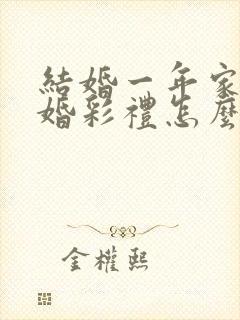 結婚一年家
婚彩禮怎麼
金權熙